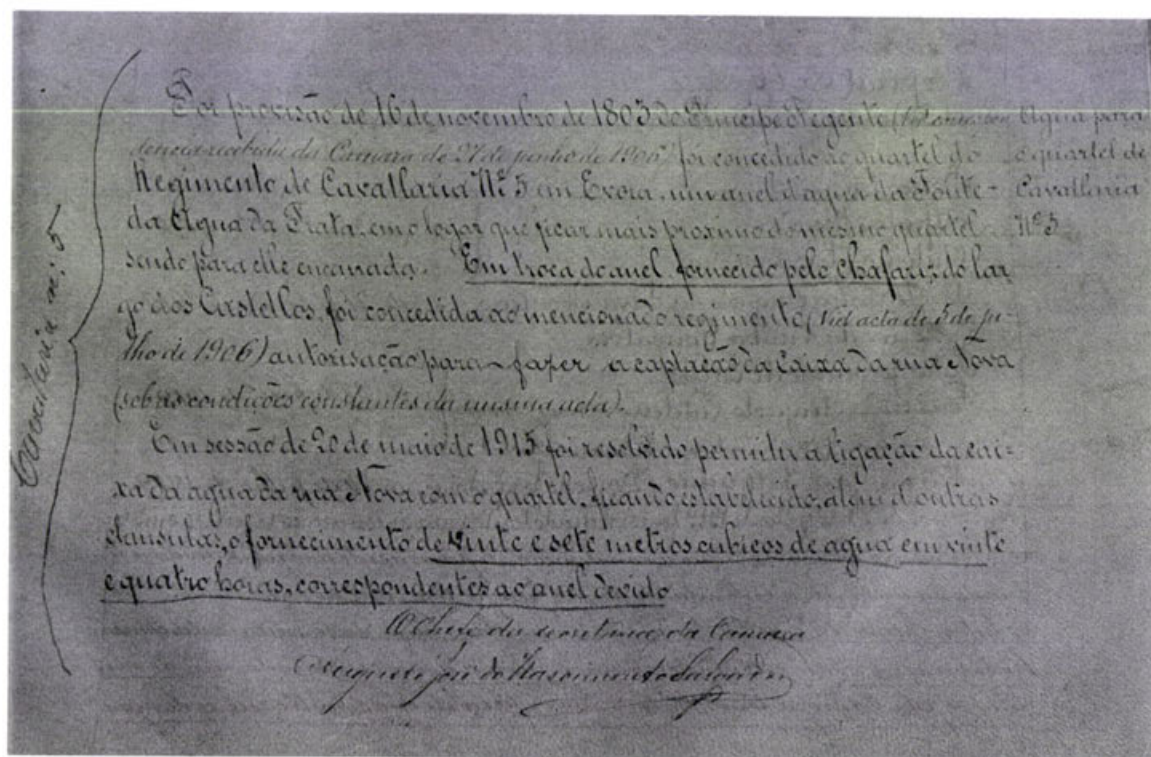 Por provisão de 16 de novembro de 1803 do Principe Regente (Vid. correspon
dencia recebida da Camara de 27 de junho de 1906) foi concedido ao quartel do
Regimento de Cavallaria Nº 5 em Evora, um anel d'agua da Fonte
da Agua da Prata, em o logar que ficar mais proximo do mesmo quartel
sendo para elle encanada. Em troca do anel fornecido pelo chafariz do lar
go dos Castellos, foi concedida ao mencionado regimento (Vid acta de 5 de ju-
lho de 1906) autorisação para fazer a captação da Caixa da rua Nova
(sob as condições constantes da mesma acta).
Em sessão de 20 de maio de 1915 foi resolvido permitir a ligação da cai-
xa da agua da rua Nova com o quartel, ficando estabelecido, álem d'outras
clausulas, o fornecimento de vinte e sete metros cubicos de agua em vinte
e quatro horas, correspondentes ao anel devido
O Chefe da secretaria da Camara
Augusto José do Nascimento
Agua para
o quartel de
Cavallaria
Nº 5
Cavallaria nº 5